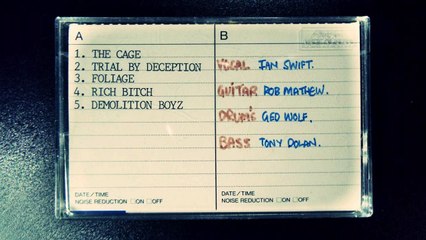 A
1. THE CAGE
2. TRIAL BY DECEPTION
3. FOLIAGE
4. RICH BITCH
5. DEMOLITION BOYZ
DATE/TIME
NOISE REDUCTION □ON □OFF
B
VOCAL IAN SWIFT.
GUITAR ROB MATHEW.
DRUMS GED WOLF.
BASS TONY DOLAN.
DATE/TIME
NOISE REDUCTION □ON □OFF